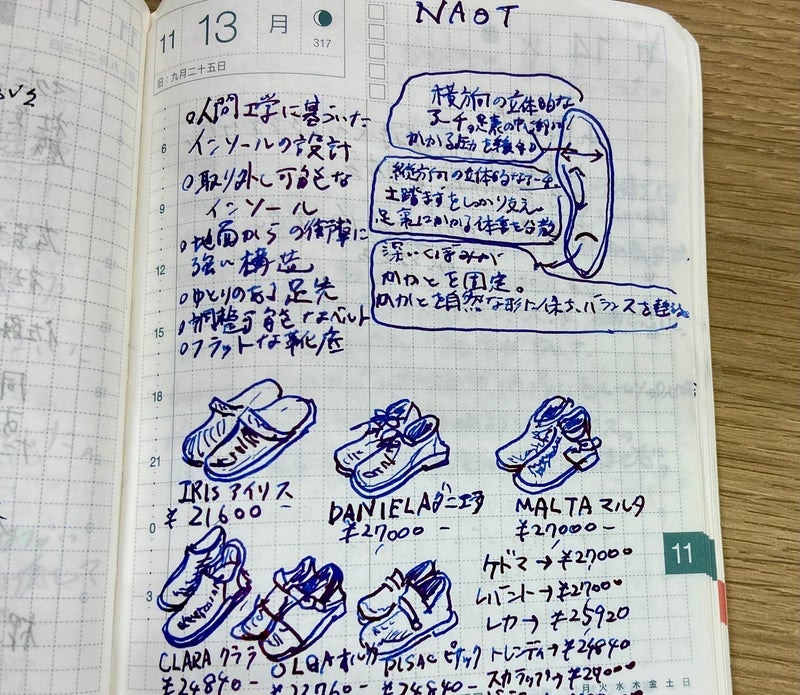 NAOT
11 13 月
317
旧:九月二十五日
横方向の立体的な
アーチが足裏の中
かかる圧力を
縦方向の立体的なアーチ
土踏まずをしっかり支え、
足裏にかかる体重を分散
深いくぼみが
かかとを固定。
かかとを自然な形に保ち、バランスを
○人間工学に基づいた
インソールの設計
○取り外し可能な
インソール
○地面からの衝撃に
強い構造
○ゆとりのある足先
○調整可能なベルト
○フラットな靴底
6
9
12
15
18
21
0
3
IRIS アイリス
¥21600-
DANIELA ダニエラ
¥27000-
MALTA マルタ
¥27000-
ケドマ→¥27000
レバント→¥27000
レカ→¥25920
トレンディ→¥24840
スカラップ→¥27000
CLARA クララ
¥24840-
OLGA オルガ
¥23760-
ピザック
¥24840-
11
月火水木金土日